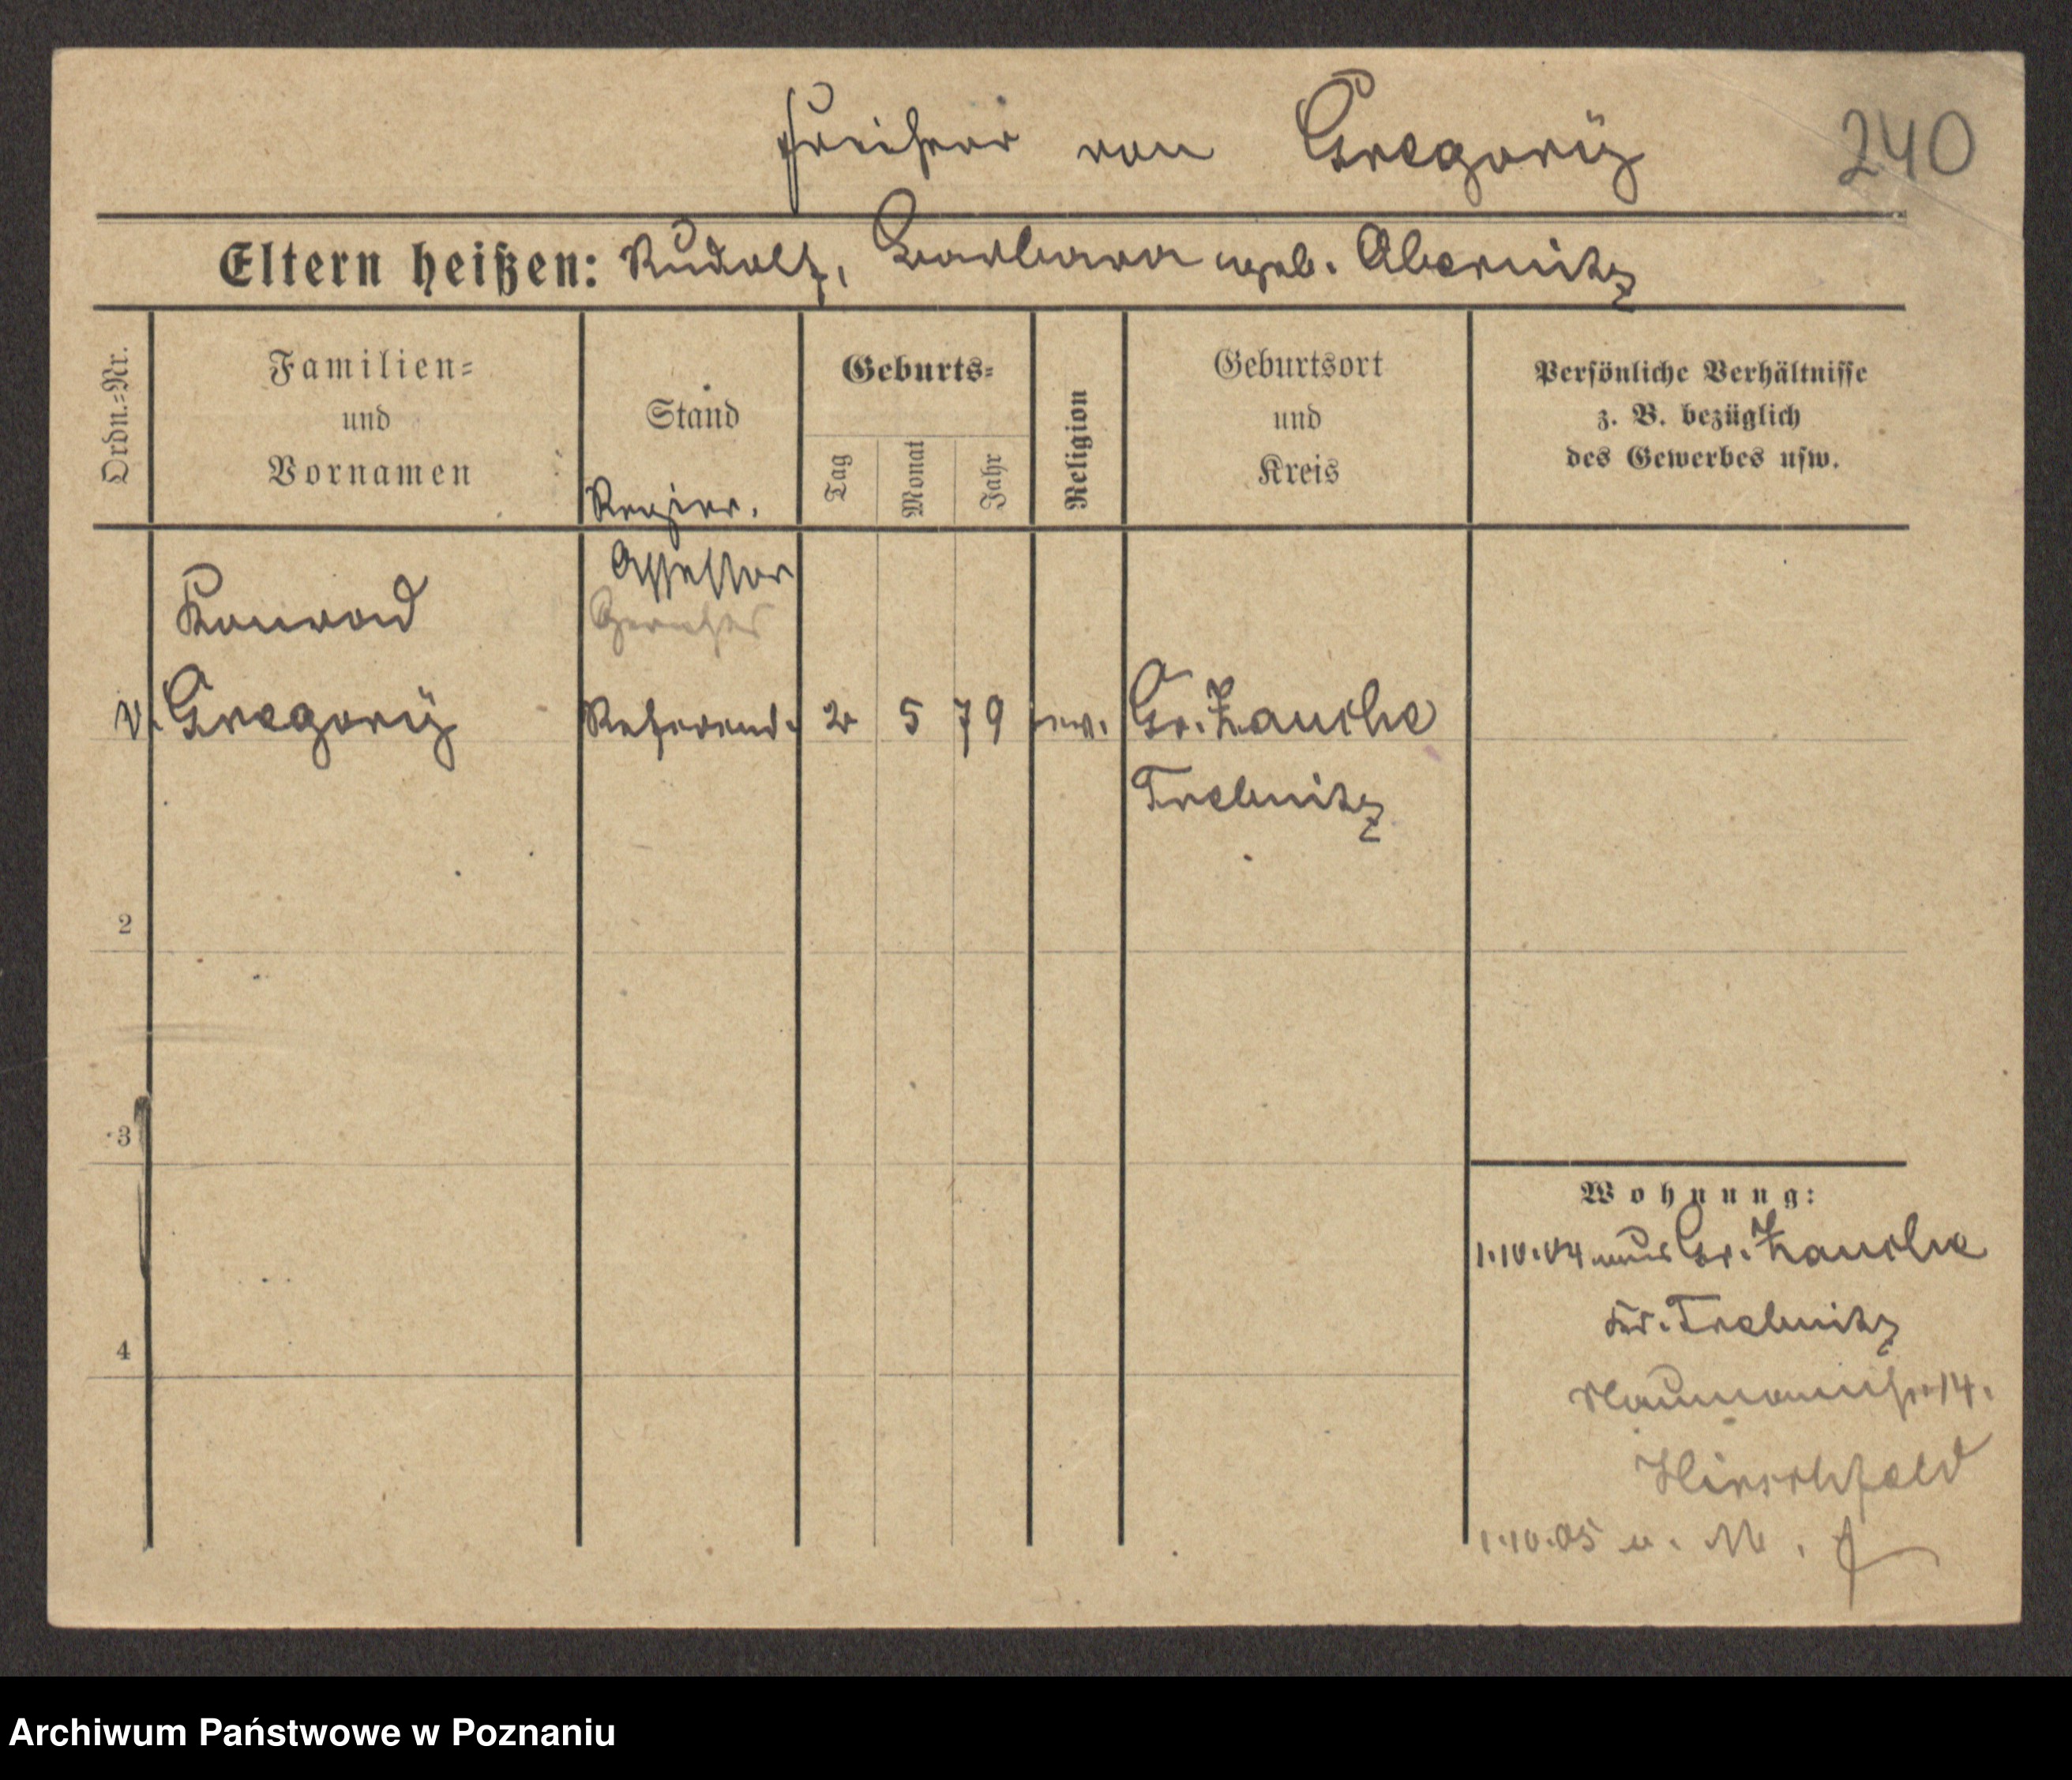 Freiherr von Gregorÿ
240
Eltern heißen: Rudolf, Barbara geb. Abernitz
Ordn.-Nr.
Familien-
und
Vornamen
Stand
Geburts-
Tag
Monat
Jahr
Religion
Geburtsort
und
Kreis
Persönliche Verhältnisse
z. B. bezüglich
des Gewerbes usw.
Regier.
Assessor
Konrad
Gerichts
v. Gregorÿ
Referend.
2
5
79
ev.
Gr. Zauche
Trebnitz
2
3
4
Wohnung:
1.10.04 aus Gr. Zauche
Kr. Trebnitz
Naumannstr. 14.
Hirschfeld
1.10.05 u. M.
Archiwum Państwowe w Poznaniu